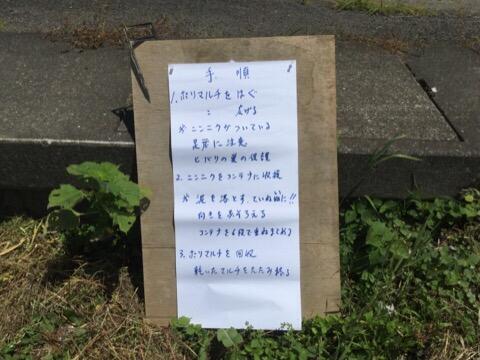 手順
1. ポリマルチをはぐ
〃 広げる
※ ニンニクがついている
に注意
ヒバリの巣の保護
2. ニンニクをコンテナに収穫
※ 泥を落とす、ていねいに!!
向きをそろえる
コンテナを6段で重ねまとめる
3. ポリマルチを回収
乾いたマルチをたたみ